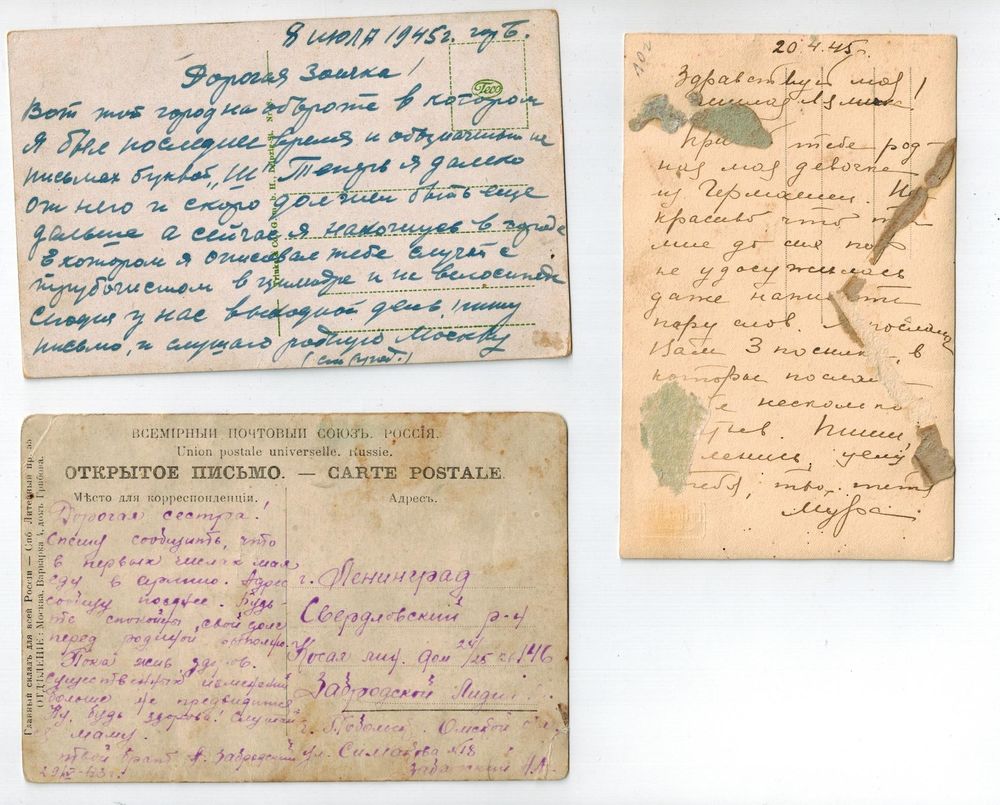 8 июля 1945г. горБ.
Дорогая Заичка!
Вот тот город на обороте в котором
я был последнее время и обозначишь не
письмах буквой "Ш" Теперь я далеко
от него и скоро должен быть еще
дальше а сейчас я нахожусь в городе
в котором я описывал тебе случай с
трубочистом в цилиндре и на велосипеде
Сегодня у нас выходной день, пишу
письмо, и слушаю родную Москву
20.4.45г.
Здравствуй моя
милая
тебе род-
ная моя девочка
из Германии.
красиво что
мне до сих пор
не удосужилась
даже написать
пару слов. Я послала
Вам 3 посылки, в
которых послала
несколько
Пиши,
ленись, целу
тебя, твоя тетя
Мура.
ВСЕМІРНЫЙ ПОЧТОВЫЙ СОЮЗЪ. РОССІЯ.
Union postale universelle. Russie.
ОТКРЫТОЕ ПИСЬМО. — CARTE POSTALE
Мѣсто для корреспонденціи.
Адресъ.
Главный складъ для всей Россіи — Спб. Литейный пр. 55
ОТДѢЛЕНІЕ: Москва, Варварка 4, домъ Грибова.
Дорогая сестра!
Спешу сообщить, что
в первых числах мая
еду в армию. Адрес
сообщу позднее. Будь-
те спокойны, свой долг
перед родиной выполню.
Пока жив, здоров.
Существенных изменений
больше не предвидится
Ну, будь здорова! Слушай
маму.
твой брат А. Забродский
29/IV-43г.
г. Ленинград
Свердловский р-н
Косая лин. дом 24/25 кв 146
Забродской Лидии
г. Тобольск. Омской обл-
ул. Симакова №18